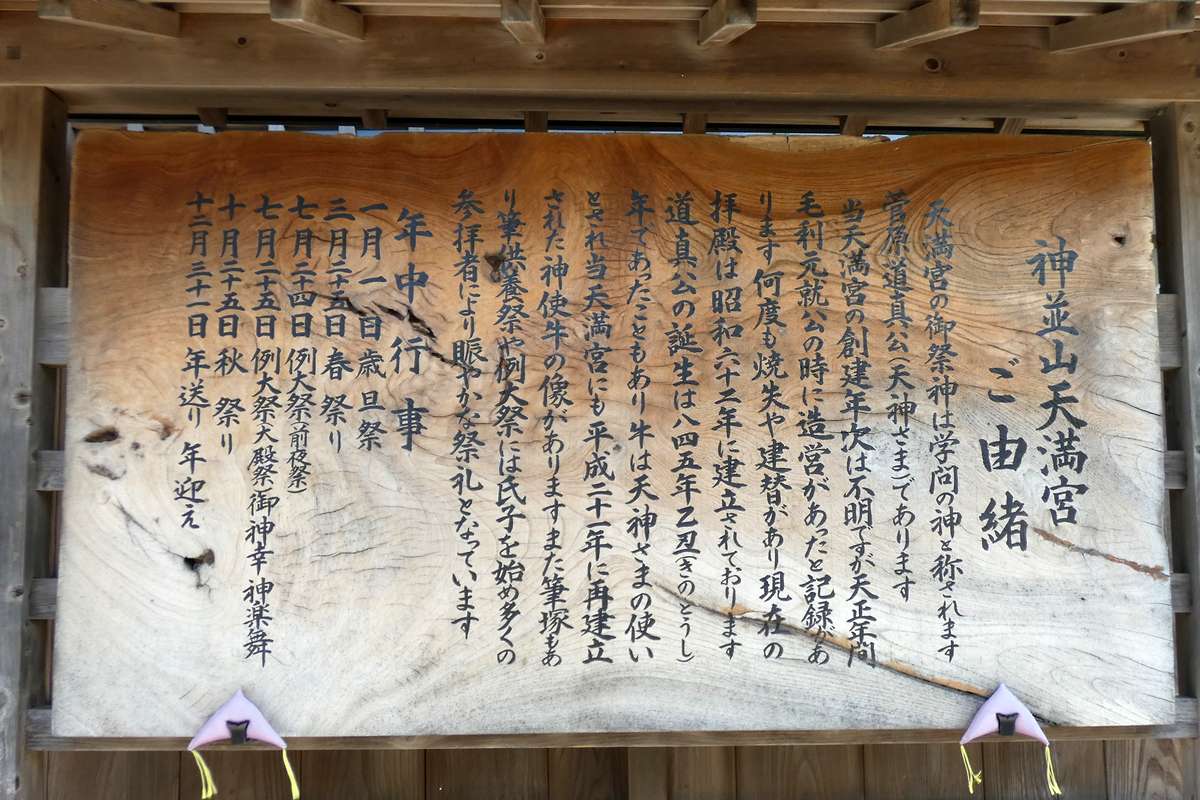 神並山天満宮
ご由緒
天満宮の御祭神は学問の神と称されます
菅原道真公(天神さま)であります
当天満宮の創建年次は不明ですが天正年間
毛利元就公の時に造営があったと記録があ
ります 何度も焼失や建替があり現在の
拝殿は昭和六十二年に建立されております
道真公の誕生は八四五年乙丑(きのとうし)
年であったこともあり牛は天神さまの使い
とされ当天満宮にも平成二十一年に再建立
された神使牛の像があります また筆塚もあ
り筆供養祭や例大祭には氏子を始め多くの
参拝者により賑やかな祭礼となっています
年中行事
一月一日 歳旦祭
三月二十五日 春祭り
七月二十四日 例大祭(前夜祭)
七月二十五日 例大祭(大殿祭)御神幸 神楽舞
十月二十五日 秋祭り
十二月三十一日 年送り 年迎え